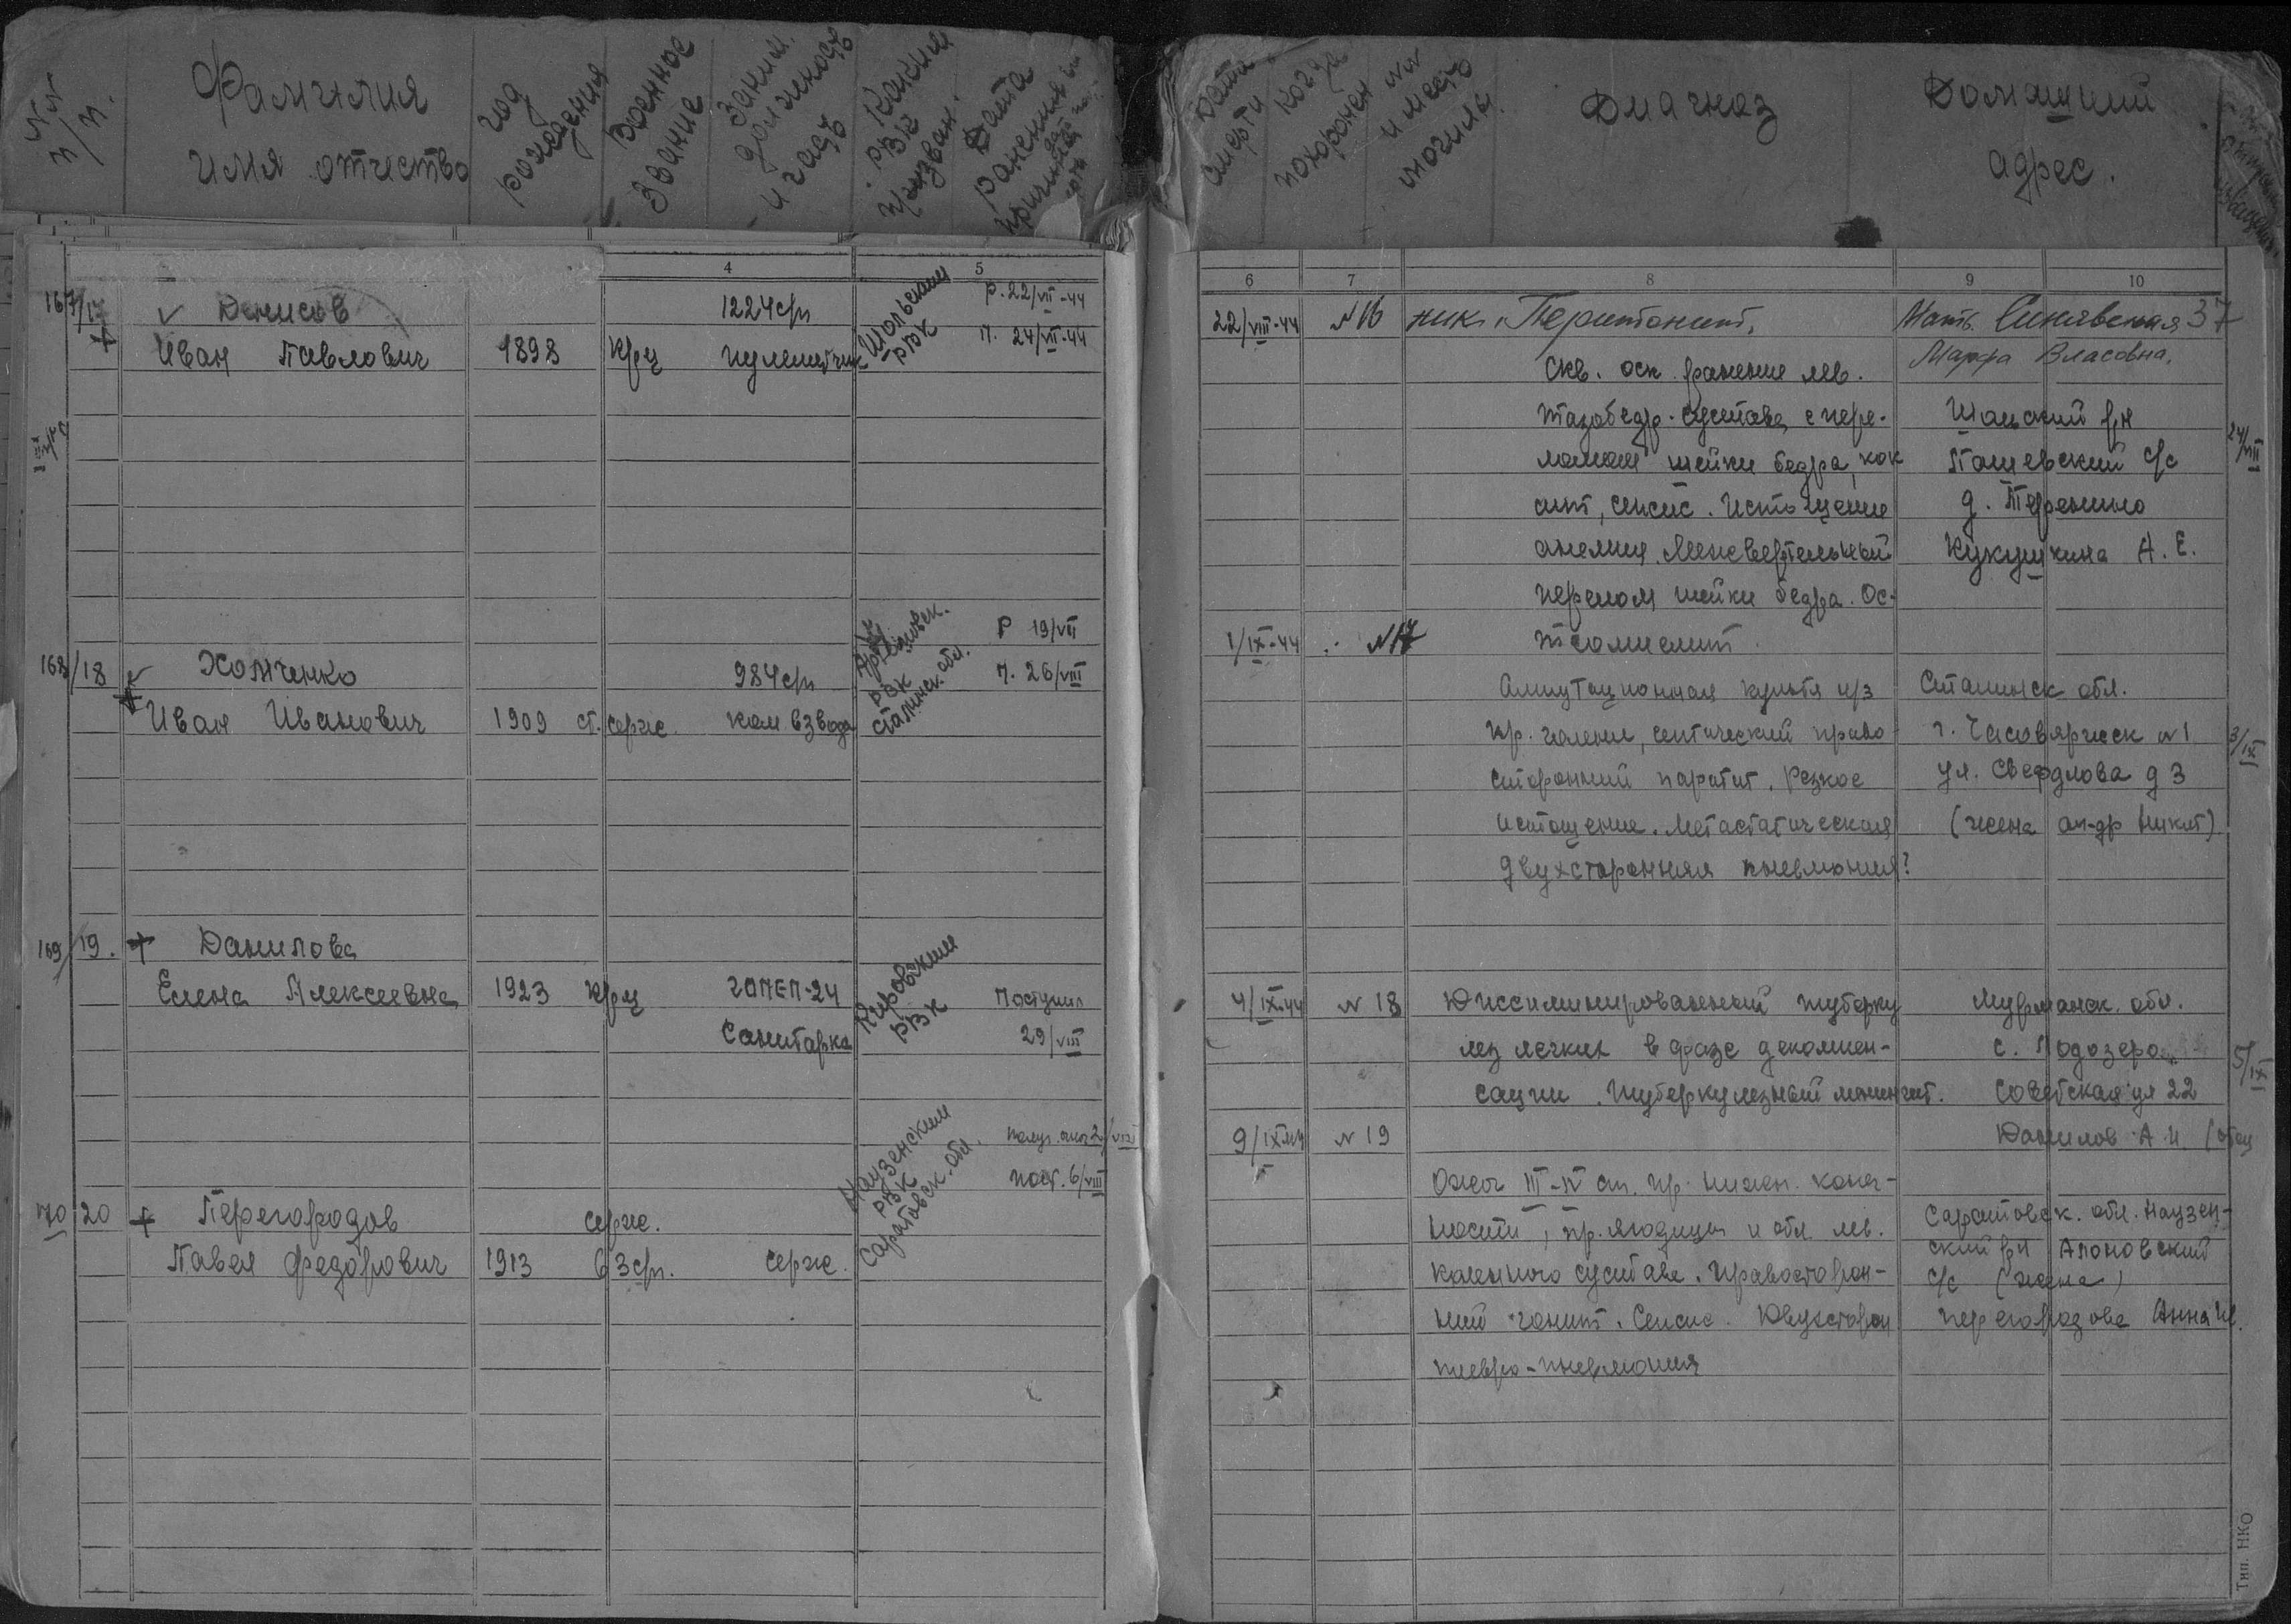 №№ п/п.
Фамилия имя отчество
год рождения
Военное Звание
Заним. должность и часть
Каким РВК призван.
Дата ранения
Дата смерти
Когда похоронен
№№ и место могилы
Диагноз
Домашний адрес.
4
5
6
7
8
9
10
167/17
Денисов
1224сп
Шольским РВК
р. 22/VII-44
Иван Павлович
1898
кр-ц
пулеметчик
п. 24/VII-44
168/18
Хомченко
984сп
РВК
сталинск. обл.
Р 19/VII
п. 26/VIII
Иван Иванович
1909
ст. серж.
ком взвода
169/19.
Данилова
Елена Алексеевна
1923
кр-ц
ГОПЕП-24
Кировским РВК
Поступил
Санитарка
29/VIII
70 20
Перегородов
серж.
РВК
Саратовск. обл.
пост. 6/VIII
Павел Федорович
1913
63сп.
серж.
22/VIII-44
№16
Перитонит.
Мать. Синявская 37
Марфа Власовна.
Скв. оск. ранение лев.
тазобедр. сустава с пере-
Шольский р-н
ломом шейки бедра, кок
с/с
24/VIII
сит, сепсис. Истощение
анемия. Межвертельный
Кукушкина А. Е.
перелом шейки бедра. Ос-
1/IX-44
№17
теомиелит
Ампутационная культя н/з
Сталинск обл.
пр. голени, септический право
г. Часовярск №1
3/IX
сторонний паротит. Резкое
ул. Свердлова д 3
истощение. Метастатическая
(жена
двухсторонняя пневмония?
4/IX-44
№ 18
Диссиминированный туберку
Мурманск. обл.
лез легких в фазе декомпен-
5/IX
сации. Туберкулезный менингит.
Советская ул 22
9/IX-44
№ 19
Данилов А. И. (отец
Ожог III-IV ст. пр. нижн. конеч-
ности, пр. ягодицы и обл. лев.
Саратовск. обл. Наузен-
ский р-н
коленного сустава. Правосторон-
с/с (жена)
ний гонит. Сепсис. Двухсторон
Перегородова Анна
плевро-пневмония
Тип. НКО